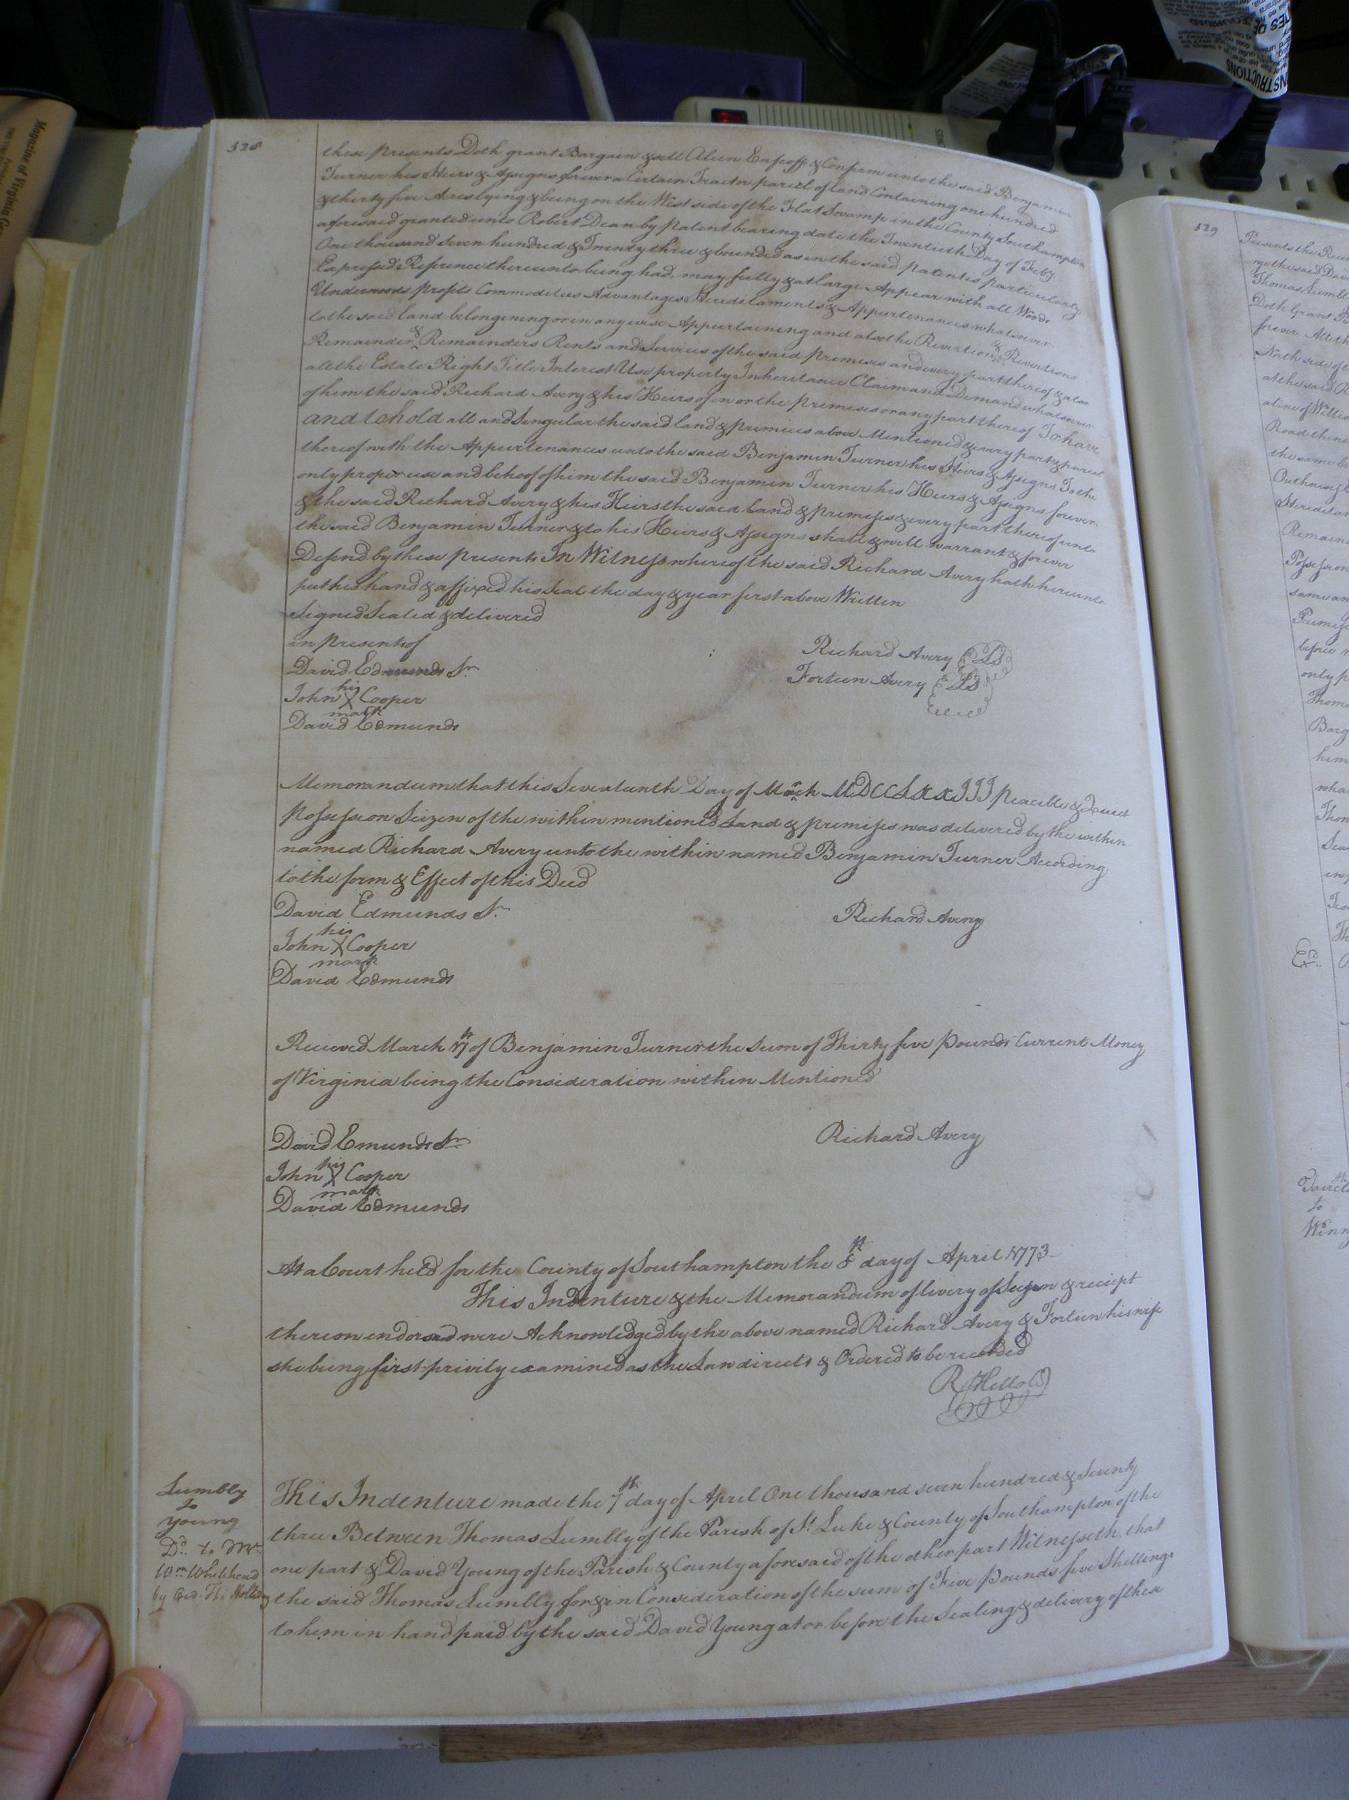 528
these presents Doth grant Bargain & sell Alien Enfeoff & Confirm unto the said Benjamin
Turner his Heirs & Assigns forever a Certain Tract or parcel of Land Containing one hundred
& thirty five Acres lying & being on the West side of the Flat Swamp in the County Southampton
aforesaid granted unto Robert Dean by patent bearing date the Twentieth Day of Feby.
One thousand Seven hundred & Twenty three & bounded as in the said patent is particularly
Expressed Reference thereunto being had may fully & at large Appear with all Woods
Underwoods profits Commodities Advantages Hereditaments & Appurtenances whatsoever
to the said Land belonging or in any wise Appurtaining and also the Revertion & Revertions
Remainder & Remainders Rents and Services of the said premises and every part thereof & also
all the Estate Right Title Interest Use property Inheritance Claim and Demand whatsoever
of him the said Richard Avery & his Heirs of in or the premises or any part thereof To have
and to hold all and Singular the said land & premises above Mentioned & every part & parcel
thereof with the Appurtenances unto the said Benjamin Turner his Heirs & Assigns To the
only proper use and behoof of him the said Benjamin Turner his Heirs & Assigns forever
& the said Richard Avery & his Heirs the said Land & premises & every part thereof unto
the said Benjamin Turner & to his Heirs & Assigns shall & will warrant & forever
Defend by these presents In Witness whereof the said Richard Avery hath hereunto
put his hand & affixed his seal the day & year first above Written
Signed Sealed & delivered
in presents of
David Edmunds Sr.
Richard Avery LS
his
John X Cooper
mark
Forteen Avery LS
David Edmunds
Memorandum that this Seventeenth Day of March MDCCLXXIII peacible & Quiet
Possession Seizen of the within mentioned Land & premises was delivered by the within
named Richard Avery unto the within named Benjamin Turner According
to the form & Effect of this Deed
David Edmunds Sr.
Richard Avery
his
John X Cooper
mark
David Edmunds
Recieved March 17th of Benjamin Turner the Sum of Thirty five pounds Current Money
of Virginia being the Consideration within Mentioned
David Emunds Sr.
Richard Avery
his
John X Cooper
mark
David Edmunds
At a Court held for the County of Southampton the 8th day of April 1773
This Indenture & the Memorandum of livery of Seizen & reciept
thereon endorsed were Acknowledged by the above named Richard Avery & Forteen his wife
she being first privily examined as the Law directs & Ordered to be recorded
R Kello
Lumbly
to
Young
Dd. to Mr
Wm Whitehead
This Indenture made the 7th day of April One thousand seven hundred & Seventy
three Between Thomas Lumbly of the Parish of St. Luke & County of Southampton of the
one part & David Young of the Parish & County aforesaid of the other part Witnesseth that
the said Thomas Lumbly for & in Consideration of the sum of Five pounds five Shillings
to him in hand paid by the said David Young at or before the Sealing & delivery of these
529
Thomas Lumbl
Doth Grant
forever
North side of
at the said
a line of Willi
Road then
the same
Outhousing
Hereditam
Remain
Possession
same an
Premis
before
only p
Thoma
Barg
him
wha
Thom
Magazine of Virginia Ge
INSTRUCTIONS